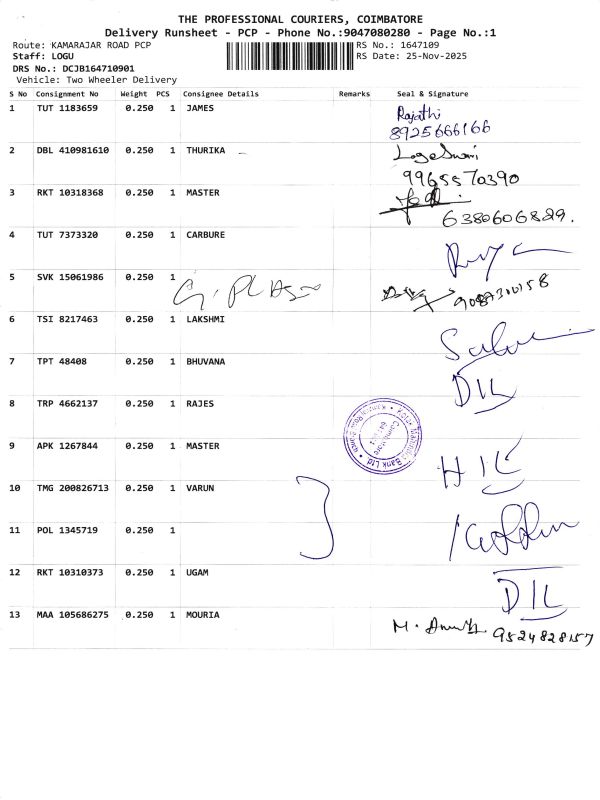 THE PROFESSIONAL COURIERS, COIMBATORE
Delivery Runsheet - PCP - Phone No.:9047080280 - Page No.:1
Route: KAMARAJAR ROAD PCP RS No.: 1647109
Staff: LOGU RS Date: 25-Nov-2025
DRS No.: DCJB164710901
Vehicle: Two Wheeler Delivery
S No Consignment No Weight PCS Consignee Details Remarks Seal & Signature
1 TUT 1183659 0.250 1 JAMES Rajathi
8925666166
2 DBL 410981610 0.250 1 THURIKA Logeswari
9965570390
3 RKT 10318368 0.250 1 MASTER
6380606829.
4 TUT 7373320 0.250 1 CARBURE
5 SVK 15061986 0.250 1
6 TSI 8217463 0.250 1 LAKSHMI
7 TPT 48408 0.250 1 BHUVANA DIL
8 TRP 4662137 0.250 1 RAJES
9 APK 1267844 0.250 1 MASTER
10 TMG 200826713 0.250 1 VARUN
11 POL 1345719 0.250 1
12 RKT 10310373 0.250 1 UGAM DIL
13 MAA 105686275 0.250 1 MOURIA 9524828157